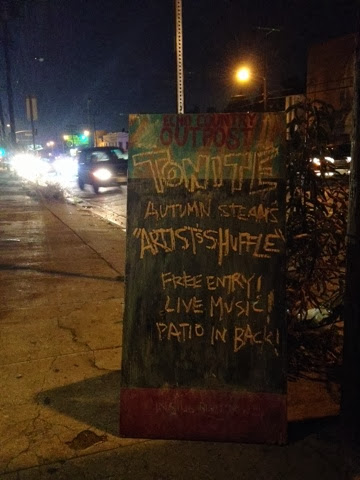 COUNTRY
OUTPOST
TONITE
AUTUMN STEAMS
"ARTISTS SHUFFLE"
FREE ENTRY!
LIVE MUSIC!
PATIO IN BACK!